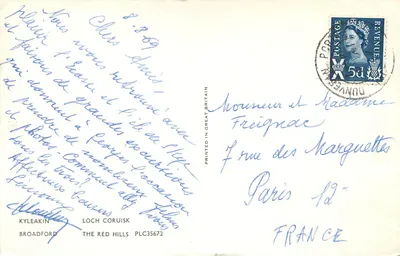 8-8-69
Chers Amis,
Nous nous retrouvons avec
plaisir l'Ecosse et l'île de Skye
et faisons de grandes excursions
qui donnent à Georges l'occasion
de prendre de nombreux films
et photos. Comment allez vous
tous les trois?
Affectueux
KYLEAKIN LOCH CORUISK
BROADFORD THE RED HILLS PLC35672
PRINTED IN GREAT BRITAIN
POSTAGE REVENUE
5d
Monsieur et Madame
Freignac
7 rue des Marguettes
Paris 12-
FRANCE